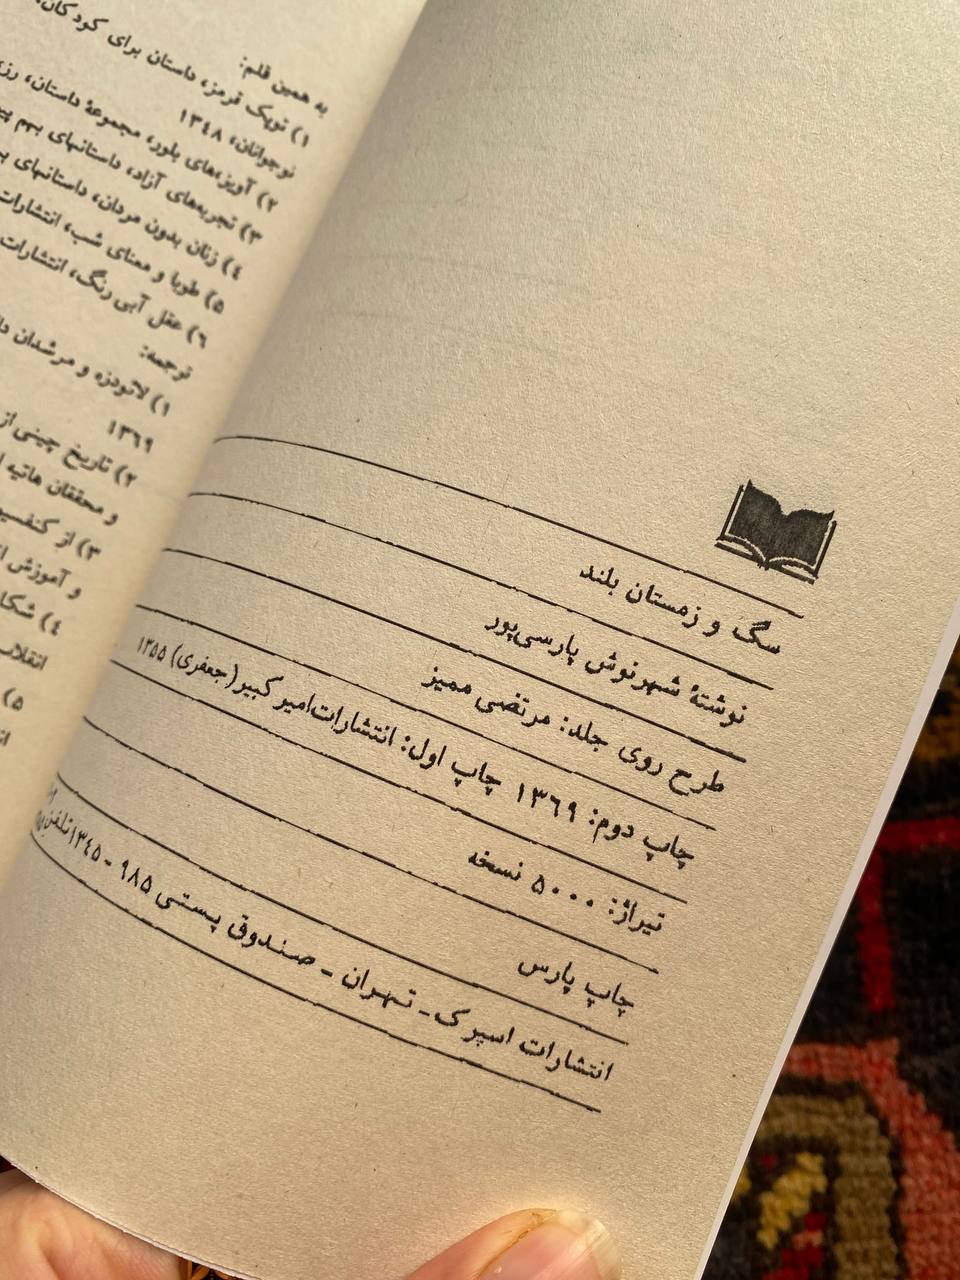 به همین قلم:
۱) توپک قرمز، داستان برای کودکان،
نوجوانان، ۱۳۴۸
۲) آویزه‌های بلور، مجموعهٔ داستان،
۳) تجربه‌های آزاد، داستانهای بهم
۴) زنان بدون مردان، داستانهای
۵) طوبا و معنای شب، انتشارات
۶) عقل آبی رنگ، انتشارات
ترجمه:
۱) لائودزه و مرشدان
۱۳۶۹
۲) تاریخ چینی از
و محققان هاتیه
۳) از
و آموزش
۴)
۵)
سگ و زمستان بلند
نوشتهٔ شهرنوش پارسی‌پور
طرح روی جلد: مرتضی ممیز
چاپ دوم: ۱۳۶۹ چاپ اول: انتشارات امیر کبیر (جعفری) ۱۳۵۵
تیراژ: ۵۰۰۰ نسخه
چاپ پارس
انتشارات اسپرک ـ تهران ـ صندوق پستی ۹۸۵ - ۱۳۴۵ تلفن